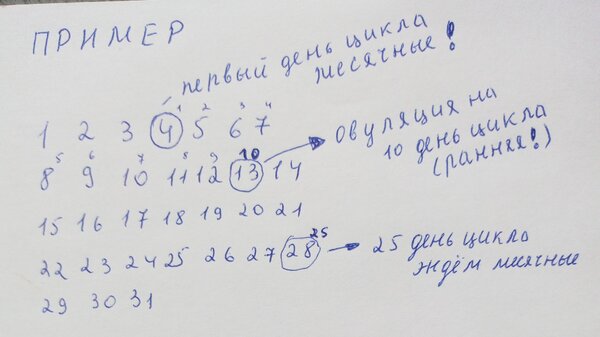 ПРИМЕР
первый день цикла
месячные!
1 2 3 4
1 2 3 4 5 6 7
овуляция на
10 день цикла
(ранняя!)
5 6 7 8 9 10
8 9 10 11 12 13 14
15 16 17 18 19 20 21
25
22 23 24 25 26 27 28
25 день цикла
ждём мисячные
29 30 31